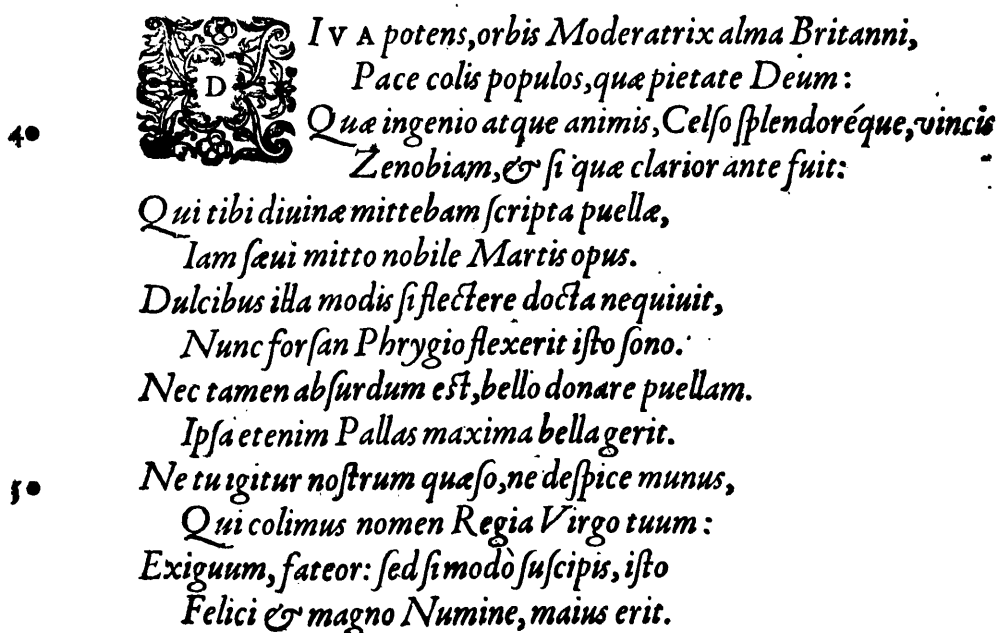 DIVA potens, orbis Moderatrix alma Britanni,
Pace colis populos, quæ pietate Deum:
40 Quæ ingenio atque animis, Celſo ſplendoréque, vincis
Zenobiam, & ſi quæ clarior ante fuit:
Qui tibi diuinæ mittebam ſcripta puellæ,
Iam ſæui mitto nobile Martis opus.
Dulcibus illa modis ſi flectere docta nequiuit,
Nunc forſan Phrygio flexerit iſto ſono.
Nec tamen abſurdum eſt, bello donare puellam.
Ipſa etenim Pallas maxima bella gerit.
50 Ne tu igitur noſtrum quæſo, ne deſpice munus,
Qui colimus nomen Regia Virgo tuum:
Exiguum, fateor: ſed ſi modò ſuſcipis, iſto
Felici & magno Numine, maius erit.